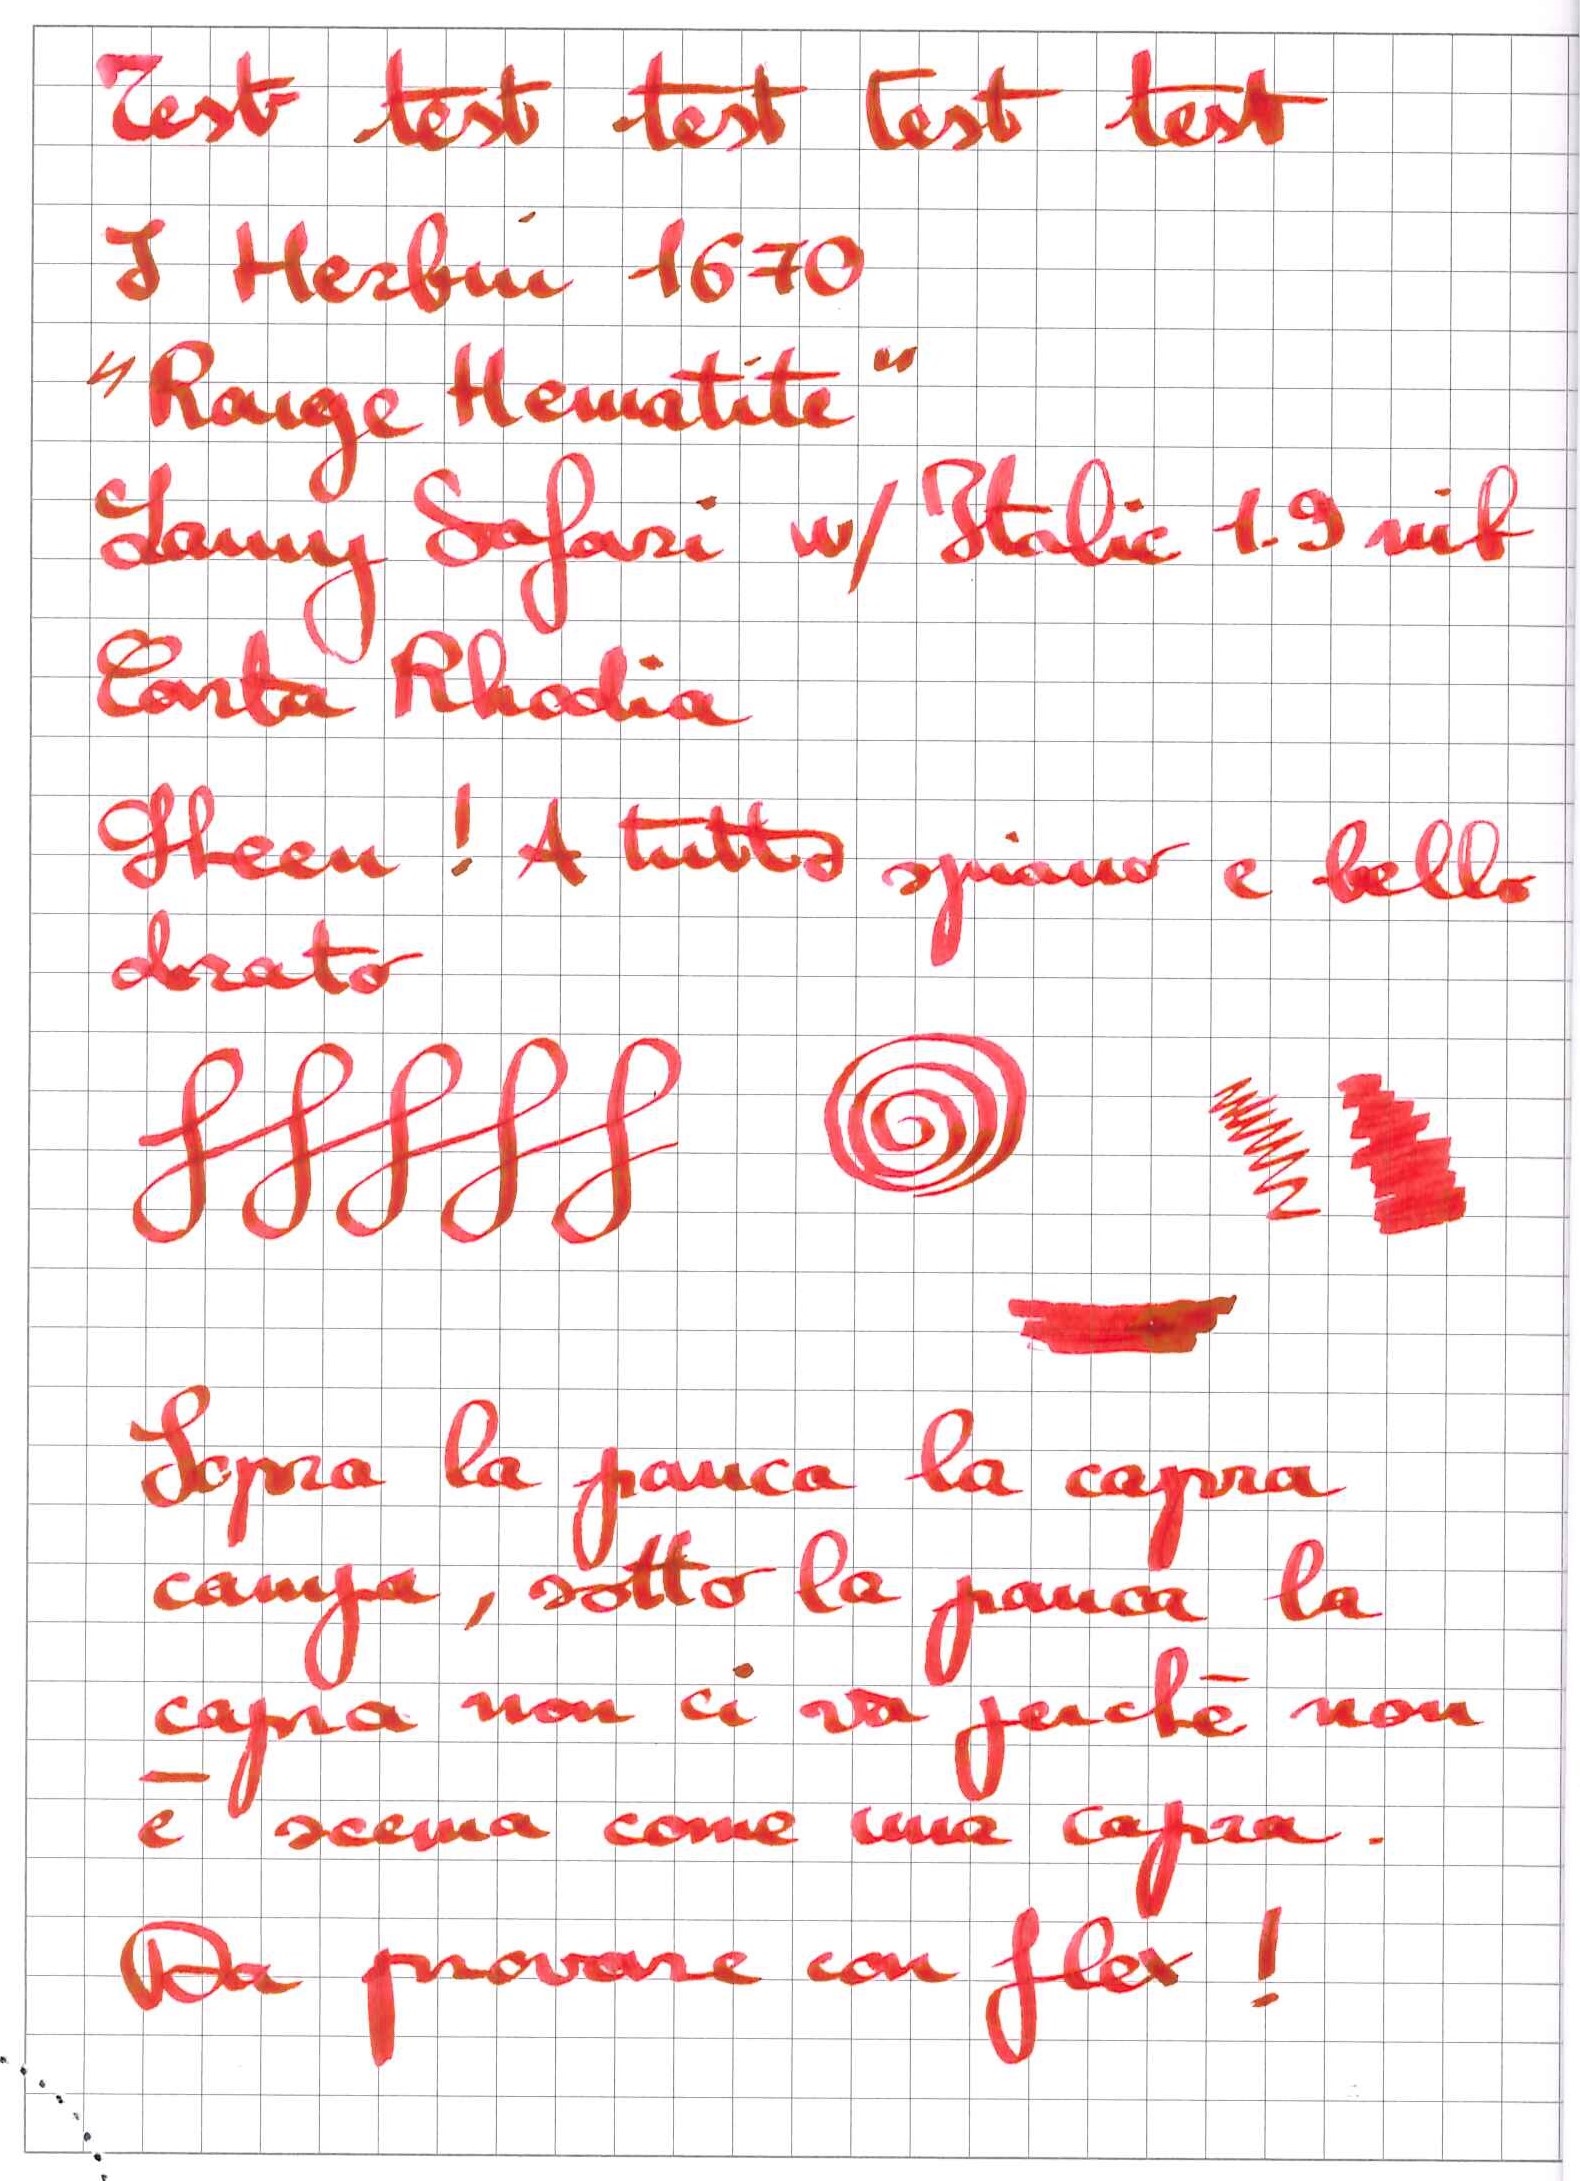 Test test test Test test
J Herbin 1670
"Rouge Hematite"
Lamy Safari w/ Italic 1.9 nib
Carta Rhodia
Sheen! A tutto spiano e bello
dorato
Sopra la panca la capra
campa, sotto la panca la
capra non ci va perchē non
ē scema come una capra.
Da provare con flex!